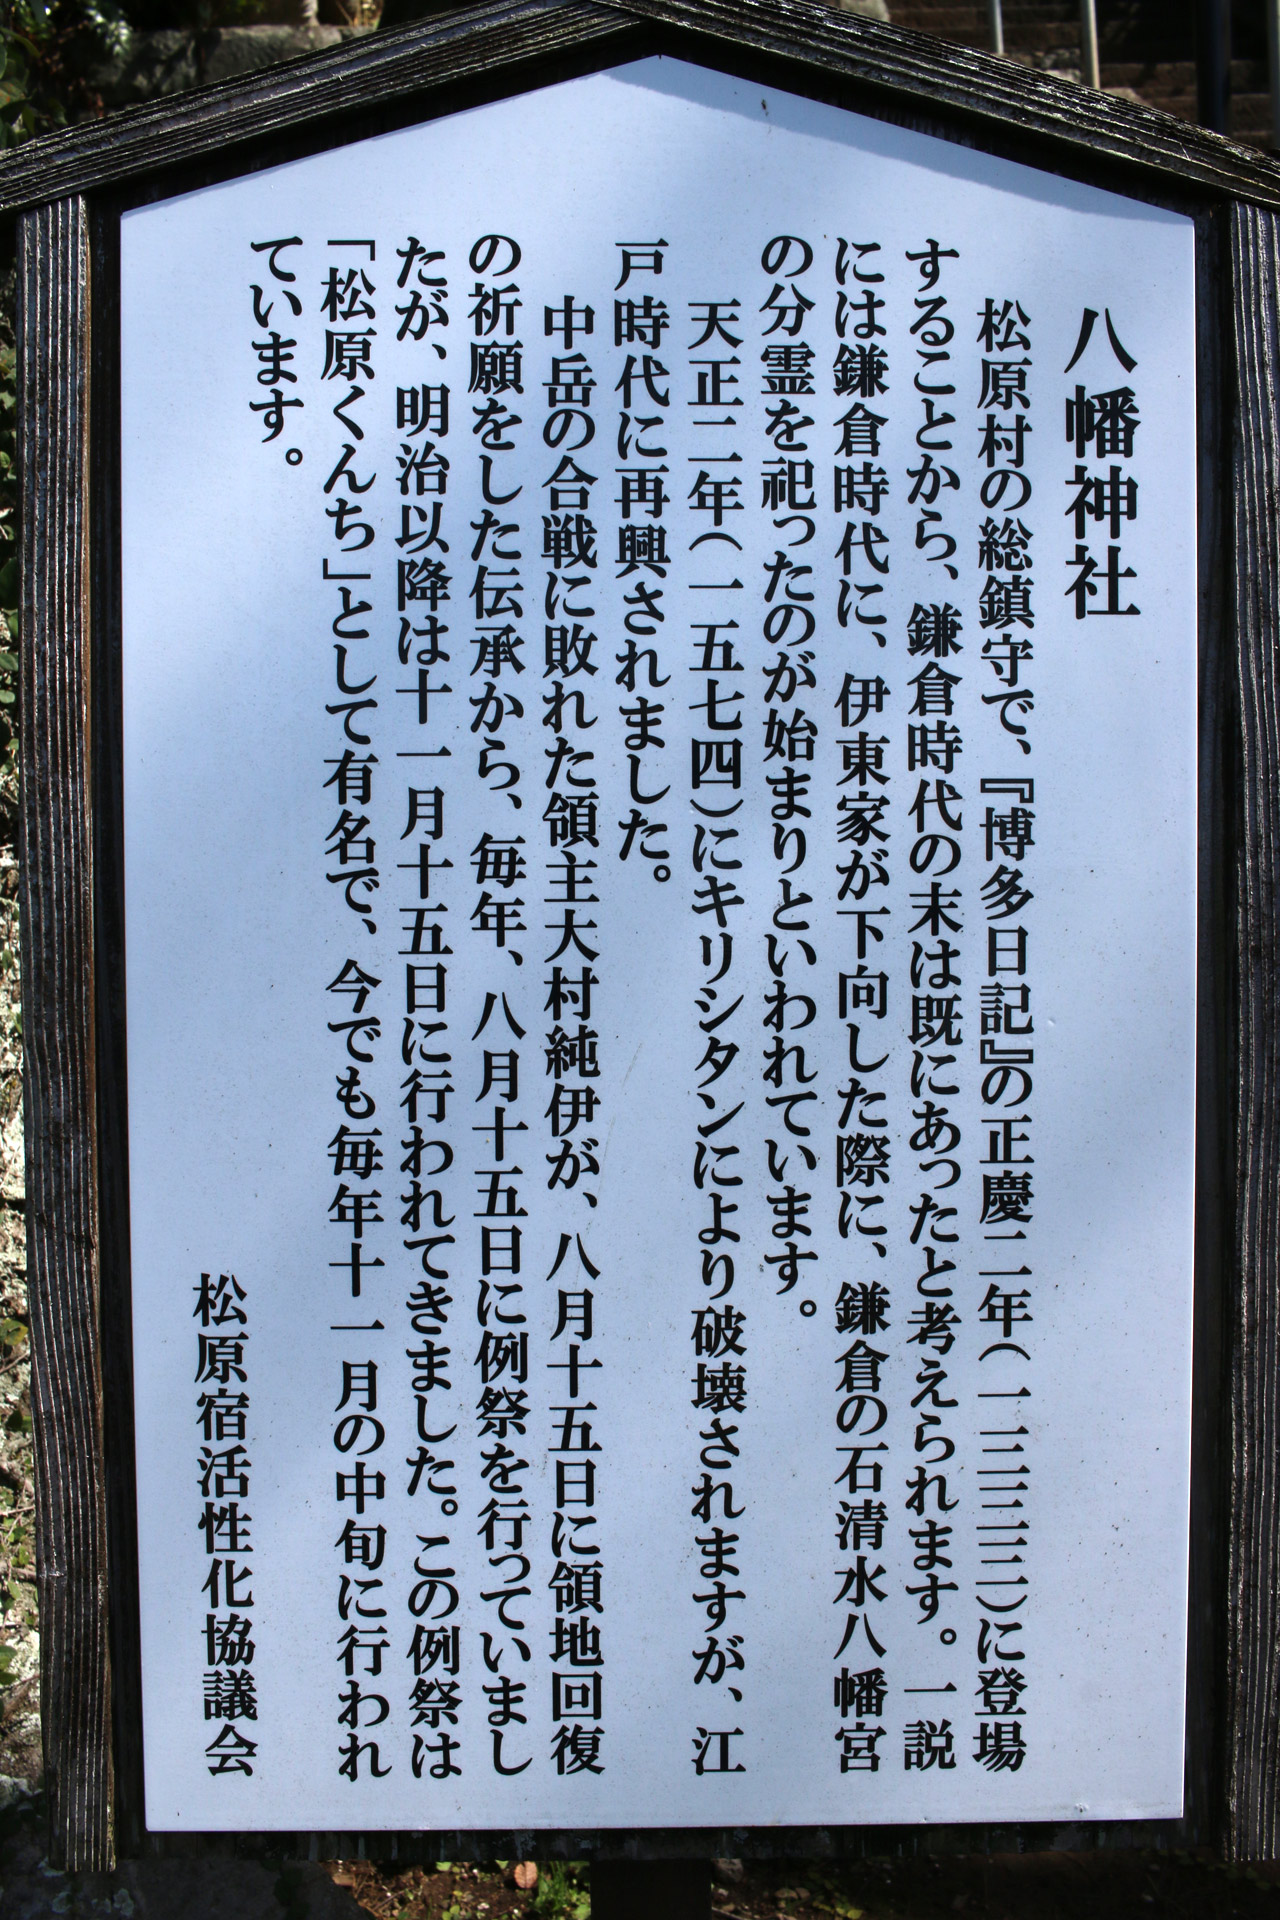 八幡神社
松原村の総鎮守で、『博多日記』の正慶二年(一三三三)に登場
することから、鎌倉時代の末は既にあったと考えられます。一説
には鎌倉時代に、伊東家が下向した際に、鎌倉の石清水八幡宮
の分霊を祀ったのが始まりといわれています。
天正二年(一五七四)にキリシタンにより破壊されますが、江
戸時代に再興されました。
中岳の合戦に敗れた領主大村純伊が、八月十五日に領地回復
の祈願をした伝承から、毎年、八月十五日に例祭を行っていまし
たが、明治以降は十一月十五日に行われてきました。この例祭は
「松原くんち」として有名で、今でも毎年十一月の中旬に行われ
ています。
松原宿活性化協議会